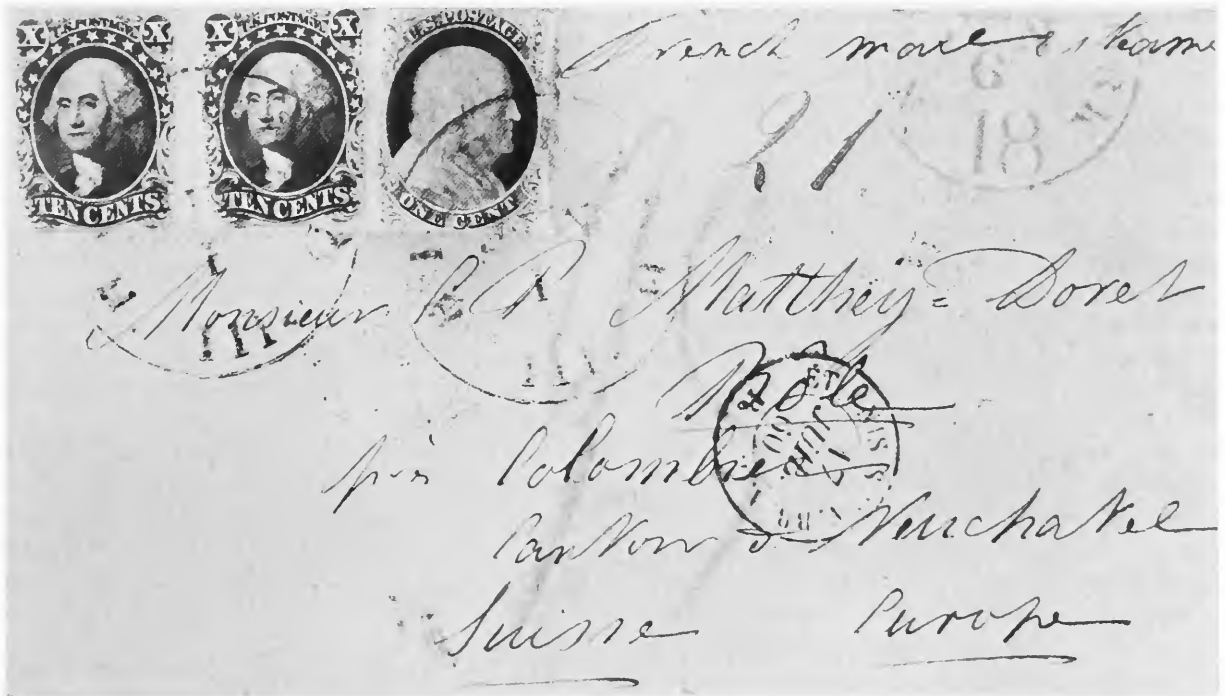 X U.S. POSTAGE X
TEN CENTS
X U.S. POSTAGE X
TEN CENTS
U.S. POSTAGE
ONE CENT
French mail steamer
21
18
Monsieur Matthey=Doret
Bôle
près Colombier
Canton de Neuchatel
Suisse Europe